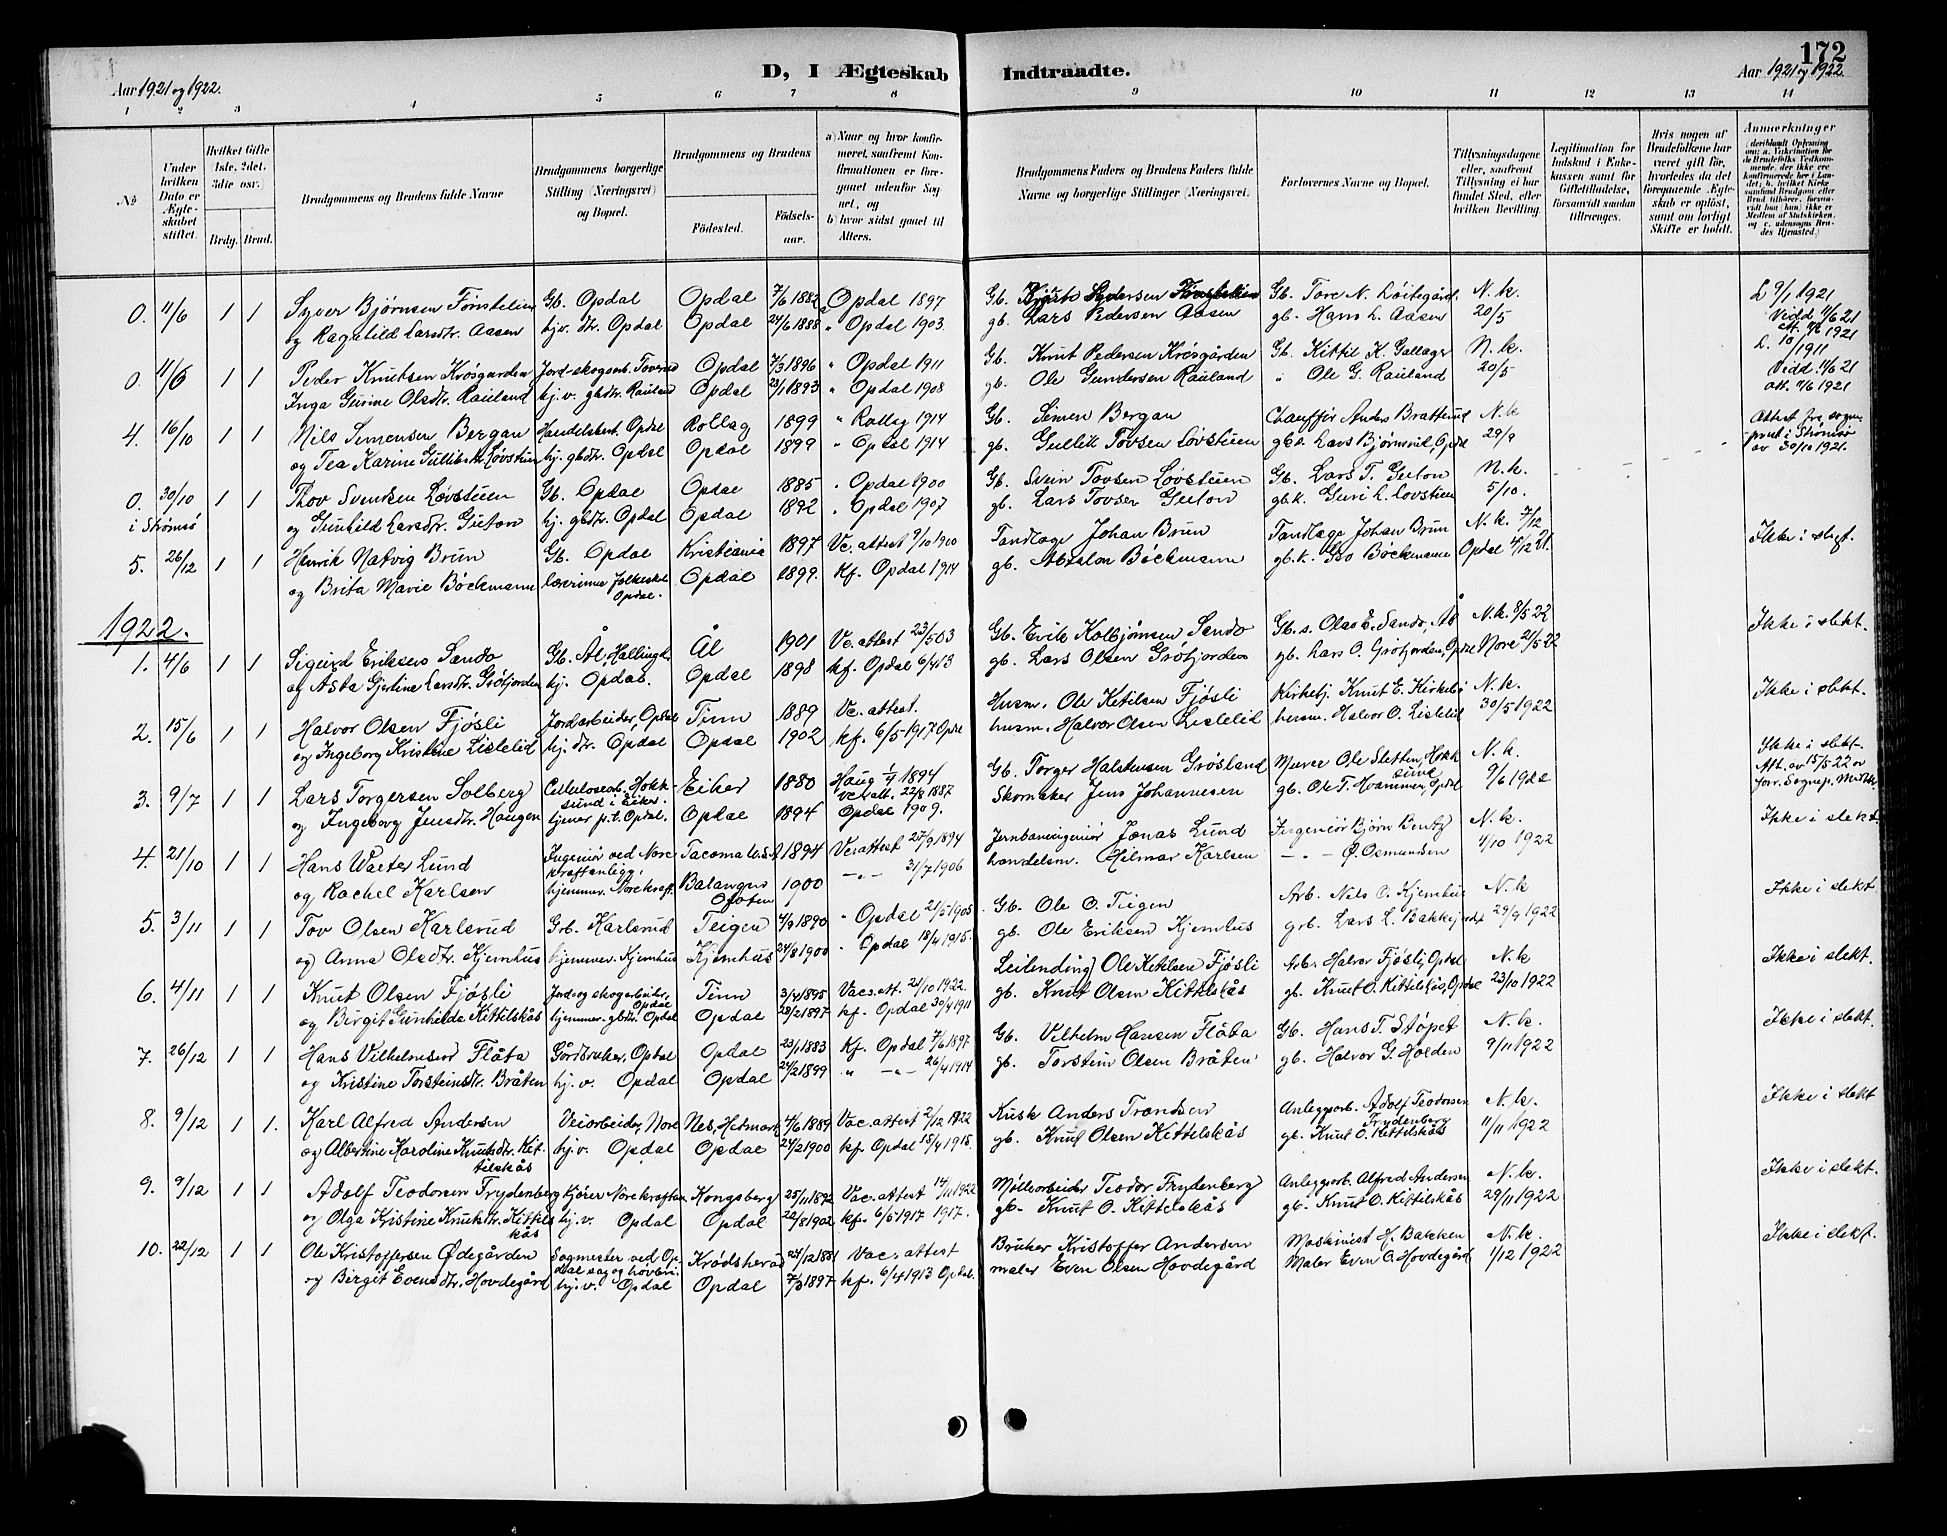 172
D, I Ægteskab Indtraadte.
Aar 1921 og 1922.
Aar 1921 og 1922
1 2 3 4 5 6 7 8 9 10 11 12 13 14
No
Under hvilken Dato er Ægteskabet stiftet.
Hvilket Gifte (1ste, 2det, 3die osv.)
Brdg. Brud.
Brudgommens og Brudens fulde Navne
Brudgommens borgerlige Stilling (Næringsvei) og Bopæl.
Brudgommens og Brudens
Fødested.
Fødselsaar.
a) Naar og hvor konfirmeret, saafremt Konfirmationen er foregaaet udenfor Sognet, og
b) hvor sidst gaaet til Alters.
Brudgommens Faders og Brudens Faders fulde Navne og borgerlige Stillinger (Næringsvei).
Forlovernes Navne og Bopæl.
Tillysningsdagene eller, saafremt Tillysning ei har fundet Sted, efter hvilken Bevilling.
Legitimation for Indskud i Enkekassen samt for Giftetilladelse, forsaavidt saadan tiltrænges.
Hvis nogen af Brudefolkene har været gift før, hvorledes da det foregaaende Ægteskab er opløst, samt om lovligt Skifte er holdt.
Anmerkninger
0. 11/6 1 1 Syver Bjørnsen Fønstelien Gb. Opdal Opdal 7/6 1882 Opdal 1897 Gb. Tore N. Løitegård. N. k. 9/1 1921
og Ragnhild Larsdtr. Aasen hjv. dtr. Opdal Opdal 24/6 1888 " Opdal 1903. gb. Lars Pedersen Aasen gb. Hans L. Aasen 20/5 Vedd 11/6 21
0. 11/6 1 1 Peder Knutsen Krosgarden Opdal 7/3 1896 " Opdal 1911 Gb. Knut Pedersen Krosgården Gb. Kittil K. Gallager N. k. 10/1911
Inga Gurine Olsdtr. Rauland hj.v. gbdtr. Rauland Opdal 23/1 1893 " Opdal 1908 gb. Ole Gundersen Rauland " Ole G. Rauland 20/5 Vedd. 11/6 21
4. 16/10 1 1 Nils Semensen Bergan Handelsbest. Opdal Rollag 1899 " Rollag 1914 Gb. Simen Bergan Chauffør Anders Bratterud N. k.
og Tea Karine Gulliksdtr. Løvstuen hj. gbdtr. Opdal Opdal 1899 " Opdal 1914 gb. Gullik Tovsen Løvstuen gb.s. Lars Bjørnsrud, Opdal 29/9 av 30/10 1921.
0. 30/10 1 1 Thov Svendsen Løvstuen Gb. Opdal Opdal 1885 " Opdal 1900 Gb. Svein Tovsen Løvstuen Gb. Lars T. Guton N. k.
i Strømsø og Gunhild Larsdtr. Guton hj. gbdtr. Opdal Opdal 1892 " Opdal 1907 gb. Lars Tovsen Guton gb.k. Guri L. Løvstuen 5/10.
5. 26/12 1 1 Henrik Natvig Brun Gb. Opdal Kristiania 1897 Vc. attest 9/10 1900 Tandlæge Johan Brun Tandlæge Johan Brun N. k. 7/12 Ikke i slegt.
og Brita Marie Bøckmann lærerinne Folkeskol. Opdal. Opdal 1899. Kf. Opdal 1914 gb. Absalon Bøckmann gb.k. Bøckmann Opdal 4/12 21.
1922.
1. 4/6 1 1 Sigurd Eriksen Sando Gb. Ål, Hallingd. Ål 1901 Vc. attest 23/5 03 Gb. Erik Kolbjørnsen Sando Gb.s. Olas E. Sando, Ål N. k. 8/5 22 Ikke i slekt.
og Åsta Gjertine Larsdtr. Grøtjorden hj. Opdal. Opdal 1898 kf. Opdal 6/4 13 gb. Lars Olsen Grøtjorden gb. Lars O. Grøtjorden, Opdal Nore 21/5 22
2. 15/6 1 1 Halvor Olsen Fjøsli Jordarbeider, Opdal Tinn 1889 Vc. attest. Husm. Ole Ketilsen Fjøsli Kirketj. Knut E. Kirkebø N. k. Ikke i slekt.
og Ingeborg Kristine Lislelid hj. dtr. Opdal Opdal 1902 kf. 6/5-1917 Opdal husm. Halvor Olsen Lislelid husm. Halvor O. Lislelid 30/5 1922
3. 9/7 1 1 Lars Torgersen Solberg Cellulosearb. Hokksund i Eiker. Eiker 1880 Haug 1/4 1894 Vc. att. 22/8 1882 Gb. Torger Halstensen Grøsland Murer Ole Sletten, Hokksund N. k. Ikke i slekt.
og Ingeborg Jensdtr. Haugen tjener p.t. Opdal. Opdal 1894 Opdal 1909. Skomaker Jens Johannesen gb. Ole T. Hvammen, Opdal 9/6 1922 Att. av 15/5 22 av
4. 21/10 1 1 Hans Wæter Lund Ingeniør ved Nore kraftanlegg Tacoma U.S.A 1894 Vc. attest 27/9 1894 Jernbaneingeniør Jonas Lund Ingeniør Bjørn Bentz N. k. Ikke i slekt.
og Rachel Karlsen hjemmev. Nore kraft. Balangen Ofoten 1900 -"- 31/7 1906 handelsm. Hilmar Karlsen -"- Ø. Osmundsen 4/10 1922
5. 3/11 1 1 Tov Olsen Karlsrud Grb. Karlsrud Teigen 4/9 1890 " Opdal 21/5 1905 Gb. Ole O. Teigen Arb. Nils O. Kjemhus N. k Ikke i slekt.
og Anna Olsdtr. Kjemhus hjemmev. Kjemhus Kjemhus 24/8 1900 " Opdal 18/4 1915. gb. Ole Eriksen Kjemhus grb. Lars L. Bakkejordet 29/9 1922
6. 4/11 1 1 Knut Olsen Fjøsli Jord og skogarbeider, Opdal Tinn 3/4 1895 Vacs.att. 21/10 1922. Leilending Ole Ketilsen Fjøsli Arb. Halvor Fjøsli, Opdal N. k Ikke i slekt.
og Birgit Gunhilda Kittilskås hjemmev. gbdtr. Opdal Opdal 28/2 1897 kf. Opdal 30/4 1911 gb. Knut Olsen Kittilskås gb. Knut O. Kittilskås, Opdal 23/10 1922
7. 26/12 1 1 Hans Vilhelmsen Flåta Gårdbruker, Opdal Opdal 23/1 1883 Kf. Opdal 7/6 1897 Gb. Vilhelm Hansen Flåta Gb. Hans T. Støpet N. k. Ikke i slekt.
og Kristine Torsteinsdtr. Bråten hj. v. Opdal Opdal 24/2 1899 " -"- 26/4 1914 gb. Torstein Olsen Bråten gb. Halvor G. Holden 9/11 1922
8. 9/12 1 1. Karl Alfred Andersen Veiarbeider, Nore Nes, Hedmark 4/6 1889 Vac. attest 2/12 1922 Kusk Anders Trondsen Anleggsarb. Adolf Teodorsen Frydenberg N. k. Ikke i slekt
og Albertine Karoline Knutsdtr. Kittilskås hj.v. Opdal Opdal 24/2 1900 kf. Opdal 18/4 1915. gb. Knut Olsen Kittilskås gb. Knut O. Kittilskås 11/11 1922
9. 9/12 1 1 Adolf Teodorsen Frydenberg Kjører Nore kraftan. Kongsberg 25/11 1892 Vac. attest 14/11 1922 Møllearbeider Teodor Frydenberg Anleggsarb. Alfred Andersen N. k. Ikke i slekt.
og Olga Kristine Knutsdtr. Kittilskås hj.v. Opdal Opdal 22/8 1902 kf. 6/5 1917 1917. gb. Knut O. Kittilskås gb. Knut O. Kittilskås 29/11 1922
10. 22/12 1 1 Ole Kristoffersen Ødegården Sagmester ved Opdal sag og høvleri. Krødsherad 24/12 1881 Vac. attest Bruker Kristoffer Andersen Maskinist H. Bakken N. k. Ikke i slekt.
og Birgit Evensdtr. Hovdegård hj.v. Opdal Opdal 7/3 1897 kf. 6/4 1913 Opdal. maler Even Olsen Hovdegård Maler Even O. Hovdegård 1/12 1922